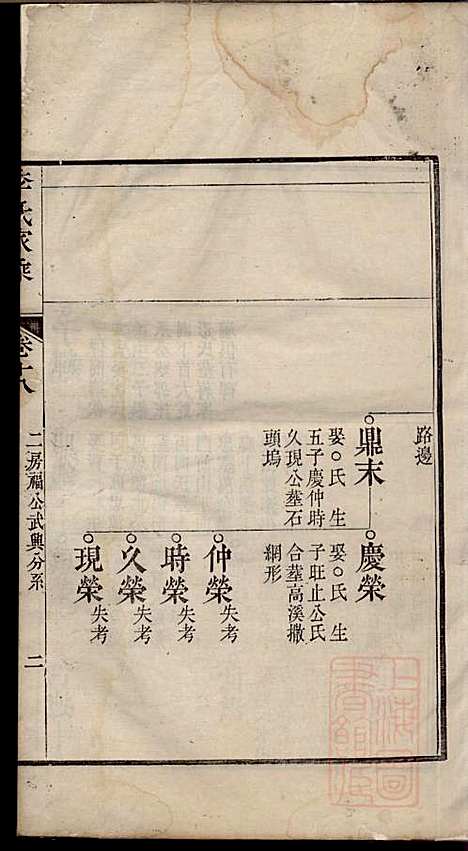 路邊
鼎末
娶○氏生
五子慶仲時
久現公墓石
頭塢
慶榮
娶○氏生
子旺止公氏
合墓高溪撒
網形
仲榮失考
時榮失考
久榮失考
現榮失考
氏家乘
卷十八
二房福公武興分系
二